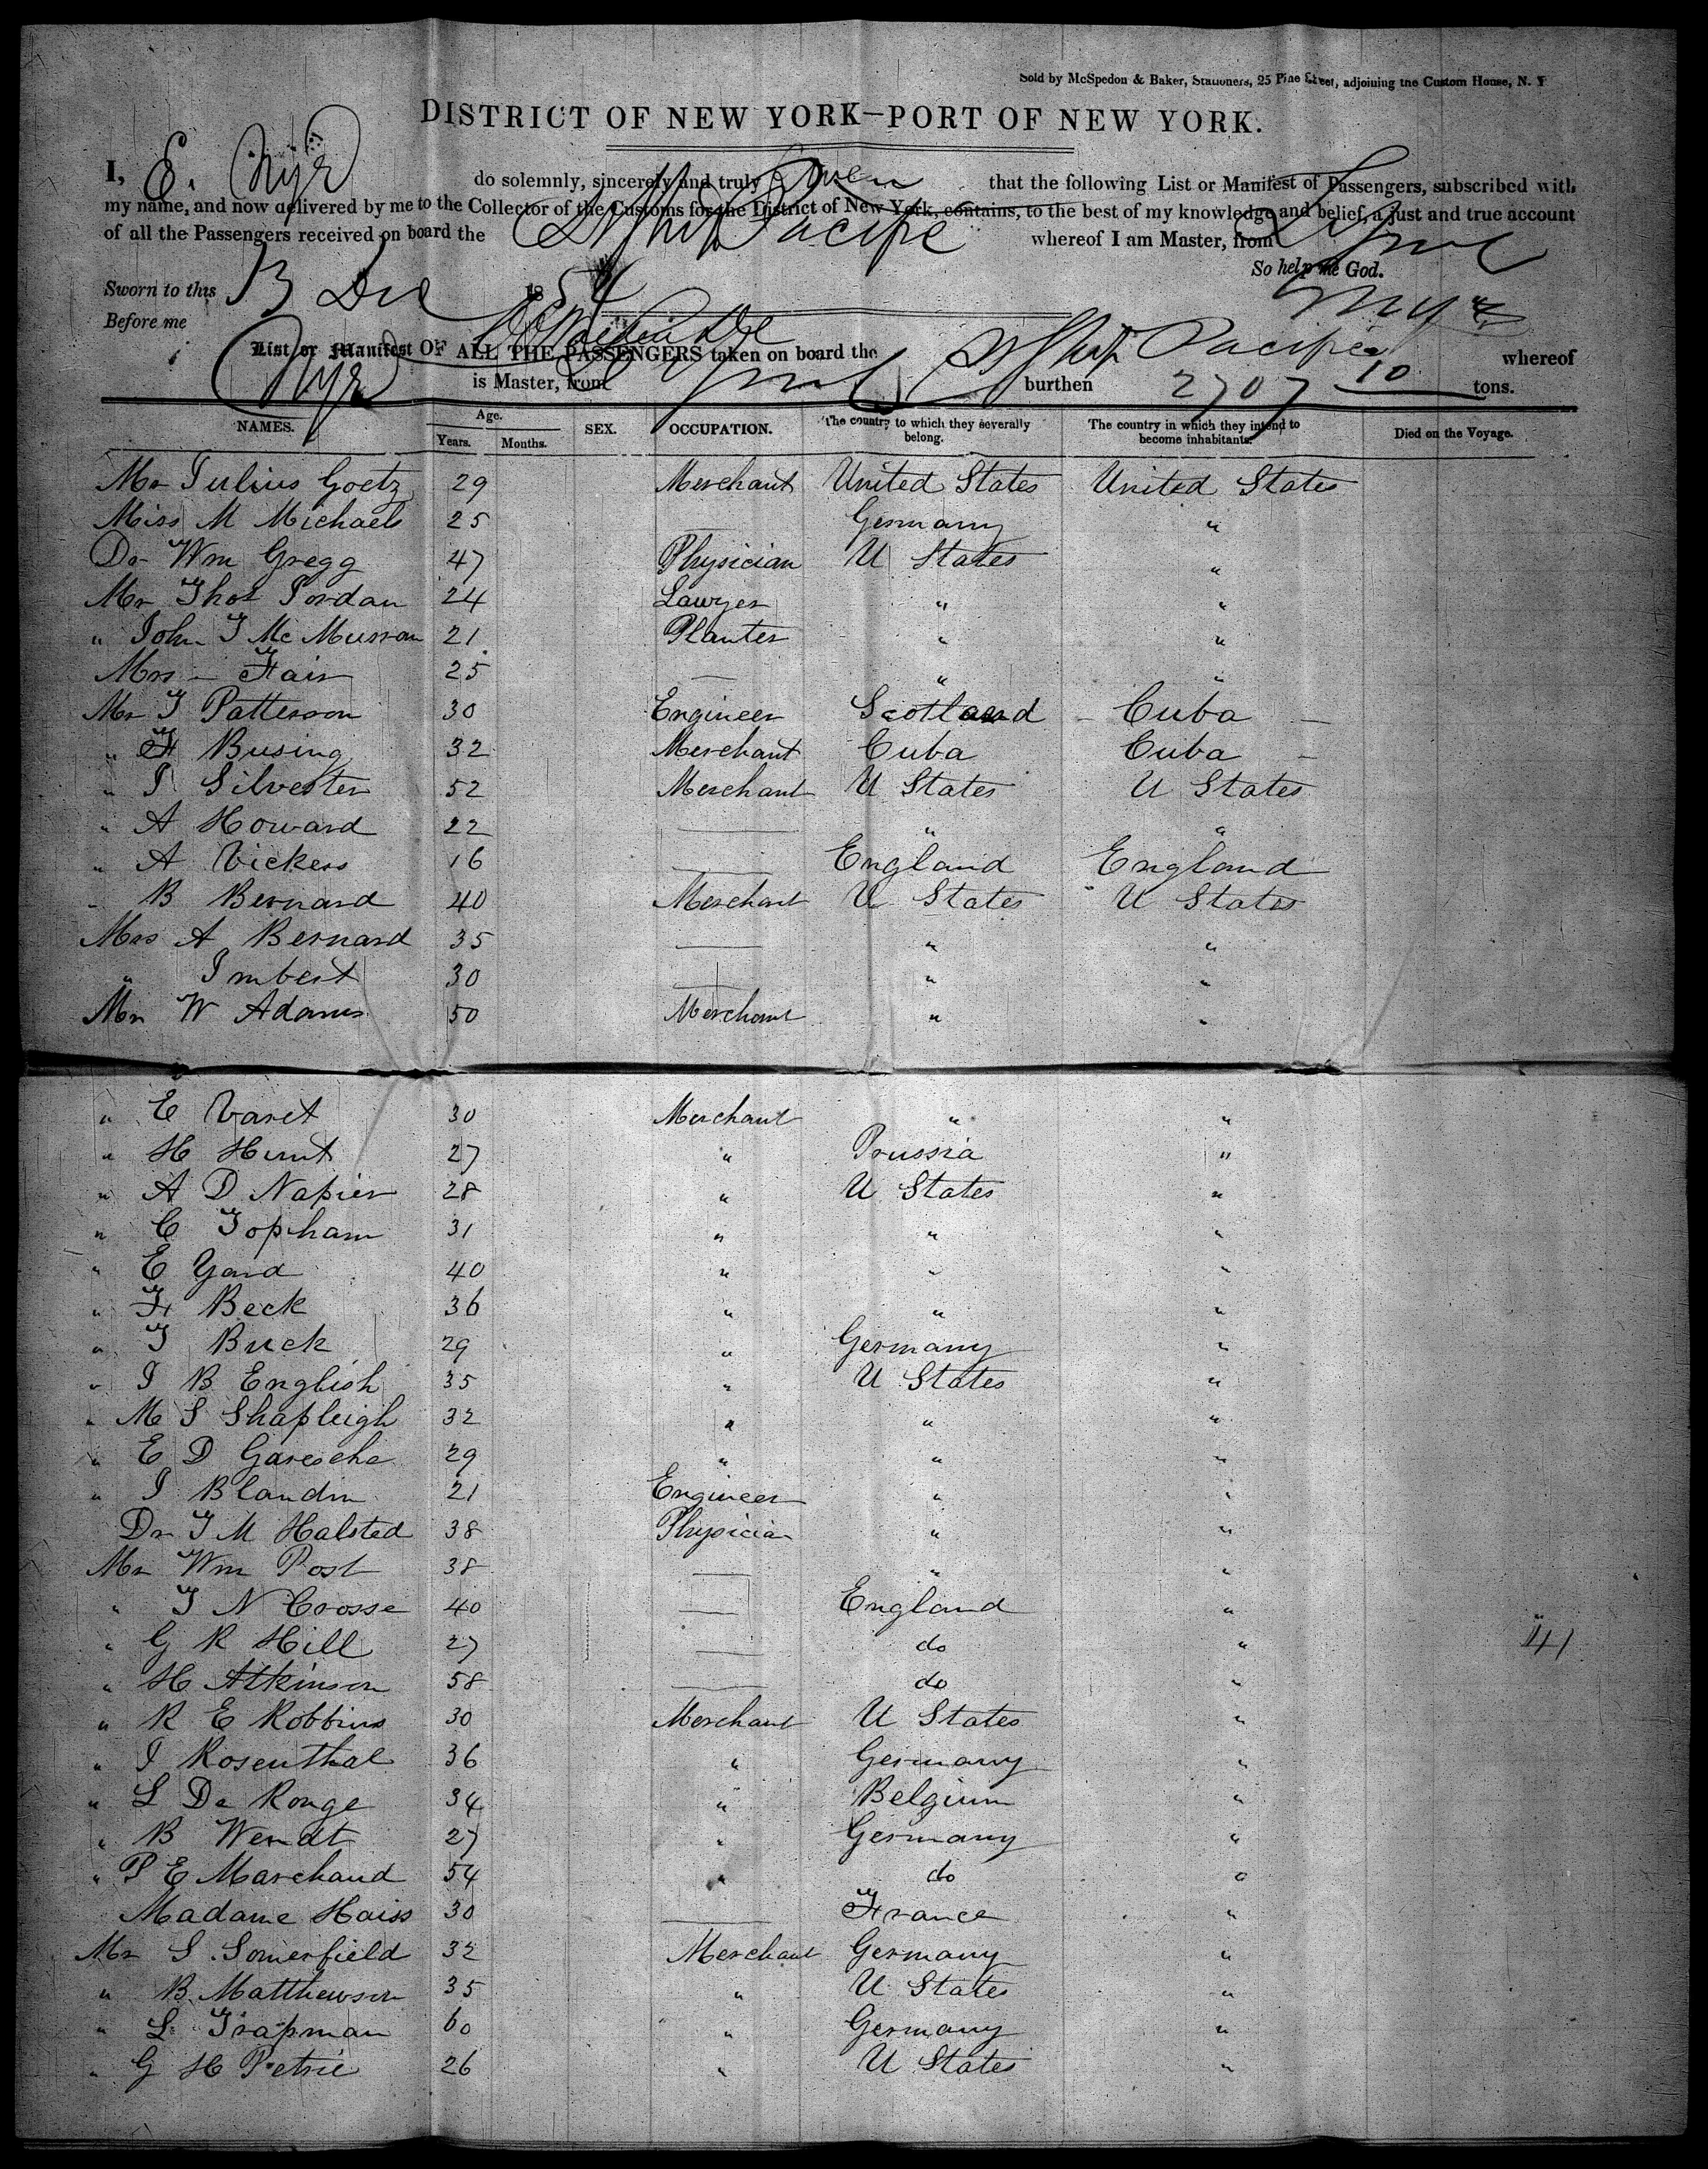 Sold by McSpedon & Baker, Stationers, 25 Pine Street, adjoining the Custom House, N. Y
DISTRICT OF NEW YORK—PORT OF NEW YORK.
I, E. Nye do solemnly, sincerely and truly swear that the following List or Manifest of Passengers, subscribed with
my name, and now delivered by me to the Collector of the Customs for the District of New York, contains, to the best of my knowledge and belief, a just and true account
of all the Passengers received on board the StShip Pacific whereof I am Master, from
So help me God.
Sworn to this 13 Dec 1854
Before me
List or Manifest OF ALL THE PASSENGERS taken on board the StShip Pacific whereof
Nye is Master, from burthen 2707 10 tons.
NAMES. Age. Years. Months. SEX. OCCUPATION. The country to which they severally belong. The country in which they intend to become inhabitants. Died on the Voyage.
Mr Julius Goetz 29 Merchant United States United States
Miss M Michaels 25 — Germany "
Dr Wm Gregg 47 Physician U States "
Mr Thos Jordan 24 Lawyer " "
" John T Mc Murran 21 Planter " "
Mrs — Fair 25 — " "
Mr J Patterson 30 Engineer Scotland — Cuba —
" F Busing 32 Merchant Cuba Cuba —
" J Silvester 52 Merchant U States U States
" A Howard 22 — " "
" A Vickers 16 — England England
" B Bernard 40 Merchant U States " U States
Mrs A Bernard 35 — " "
" Imbert 30 — " "
Mr W Adams 50 Merchant " "
" E Varet 30 Merchant " "
" H Hunt 27 " Prussia "
" A D Napier 28 " U States "
" C Topham 31 " " "
" E Yard 40 " " "
" F Beck 36 " " "
" J Buck 29 " Germany "
" J B English 35 " U States "
" M S Shapleigh 32 " " "
" E D Garesche 29 " " "
" J Blandin 21 Engineer " "
Dr T M Halsted 38 Physician " "
Mr Wm Post 38 — " "
" T N Crosse 40 — England "
" G R Hill 27 — do " 41
" H Atkinson 58 — do "
" R E Robbins 30 Merchant U States "
" J Rosenthal 36 " Germany "
" L De Ronge 34 " Belgium "
" B Wendt 27 " Germany "
" P E Marchand 54 " do "
Madame Haiss 30 — France "
Mr S Somerfield 32 Merchant Germany "
" B Matthewson 35 " U States "
" L Trapman 60 " Germany "
" G H Petrie 26 " U States "